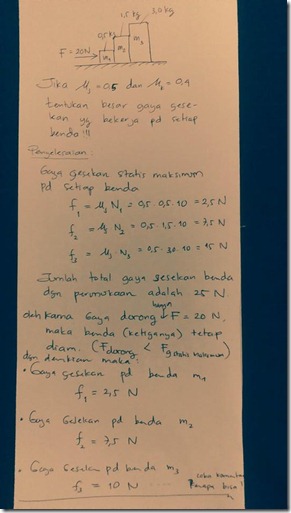 3,0 kg
1,5 kg
0,5 kg
F = 20N
m₁
m₂
m₃
Jika μs = 0,5 dan μk = 0,4
tentukan besar gaya gese-
kan yg bekerja pd setiap
benda !!!
Penyelesaian:
Gaya gesekan statis maksimum
pd setiap benda
f₁ = μs N₁ = 0,5 . 0,5 . 10 = 2,5 N
f₂ = μs N₂ = 0,5 . 1,5 . 10 = 7,5 N
f₃ = μs N₃ = 0,5 . 30 . 10 = 15 N
Jumlah total gaya gesekan benda
dgn permukaan adalah 25 N.
oleh karna Gaya dorong hanya F = 20 N,
maka benda (ketiganya) tetap
diam. (Fdorong < Fg statis maksimum)
dgn demikian maka:
• Gaya gesekan pd benda m₁
f₁ = 2,5 N
• Gaya Gesekan pd benda m₂
f₂ = 7,5 N
• Gaya Gesekan pd benda m₃
f₃ = 10 N
coba
bisa